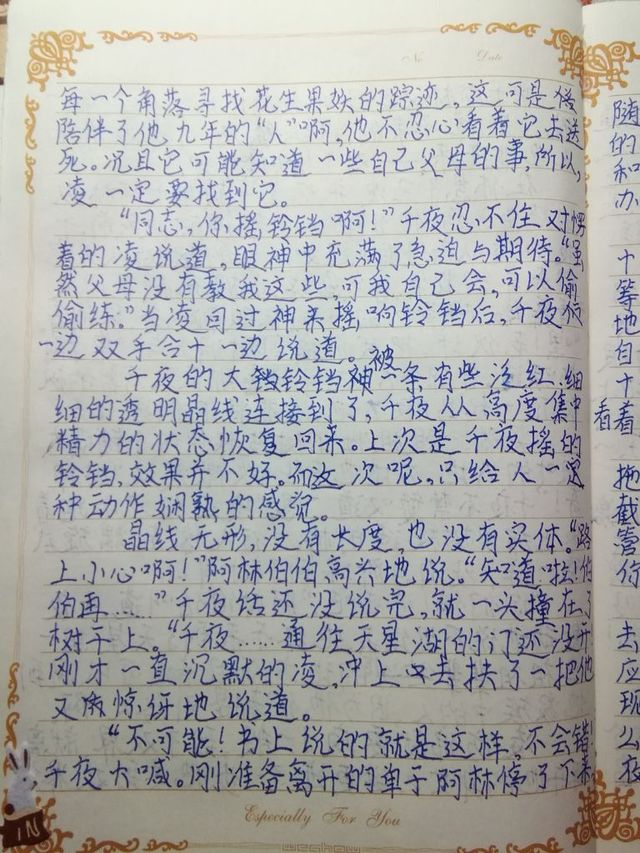 No
Date
每一个角落寻找花生果妖的踪迹。这可是陪
陪伴了他九年的“人”啊,他不忍心看着它去送
死。况且它可能知道一些自己父母的事,所以,
凌一定要找到它。
“同志,你摇铃铛啊!”千夜忍不住对愣
着的凌说道,眼神中充满了急迫与期待。“虽
然父母没有教我这些,可我自己会,可以偷
偷练。”当凌回过神来摇响铃铛后,千夜
一边双手合十一边说道。
千夜的大铛铃铛被一条有些泛红,细
细的透明晶线连接到了,千夜从高度集中
精力的状态恢复回来。上次是千夜摇的
铃铛,效果并不好。而这次呢,只给人一定
种动作娴熟的感觉。
晶线无形,没有长度,也没有实体。“路
上小心啊!”阿林伯伯高兴地说。“知道啦!伯
伯再……”千夜话还没说完,就一头撞在了
树干上。“千夜……通往天星湖的门还没开
刚才一直沉默的凌,冲上去扶了一把他
又惊讶地说道。
“不可能!书上说的就是这样,不会错!
千夜大喊。刚准备离开的单于阿林停了下来
Especially For You
IN
随
的
和
办
十
等
地
自
十
看着
拖
截
管
你
去
应
现
么
夜